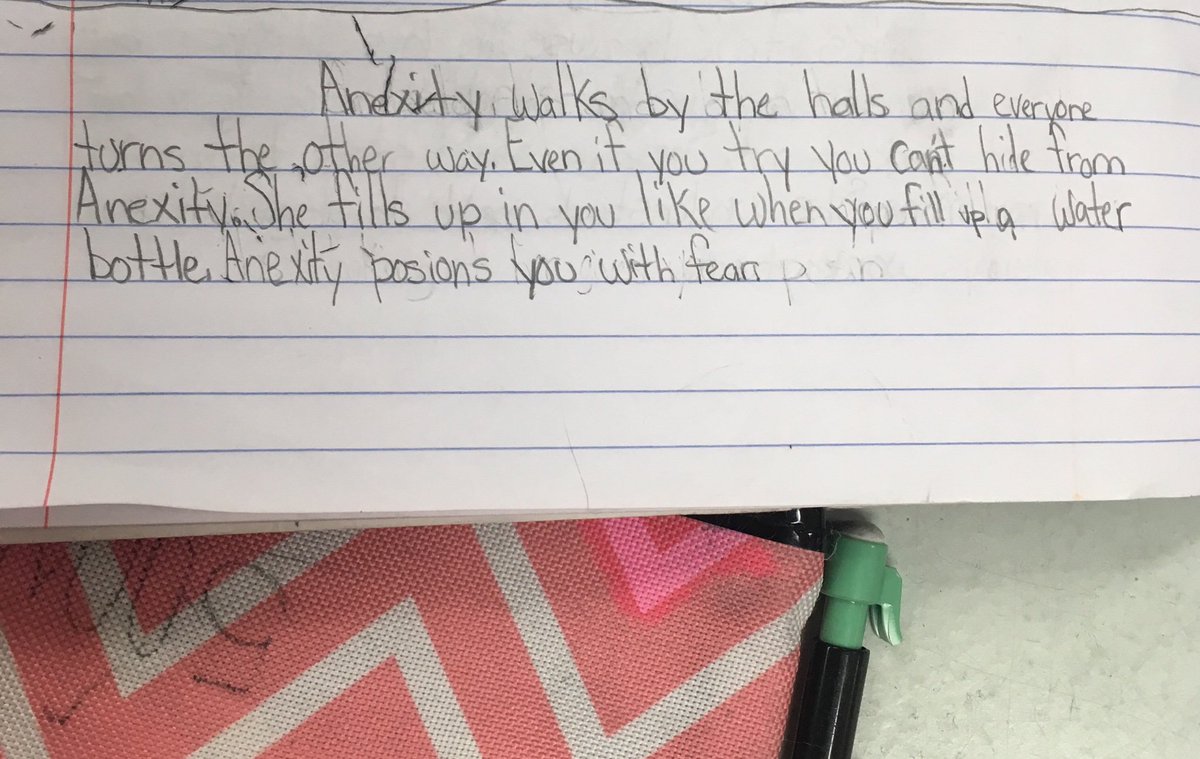 Anexity walks by the halls and everyone
turns the other way. Even if you try you can't hide from
Anexity. She fills up in you like when you fill up a water
bottle. Anexity posions you with fear.